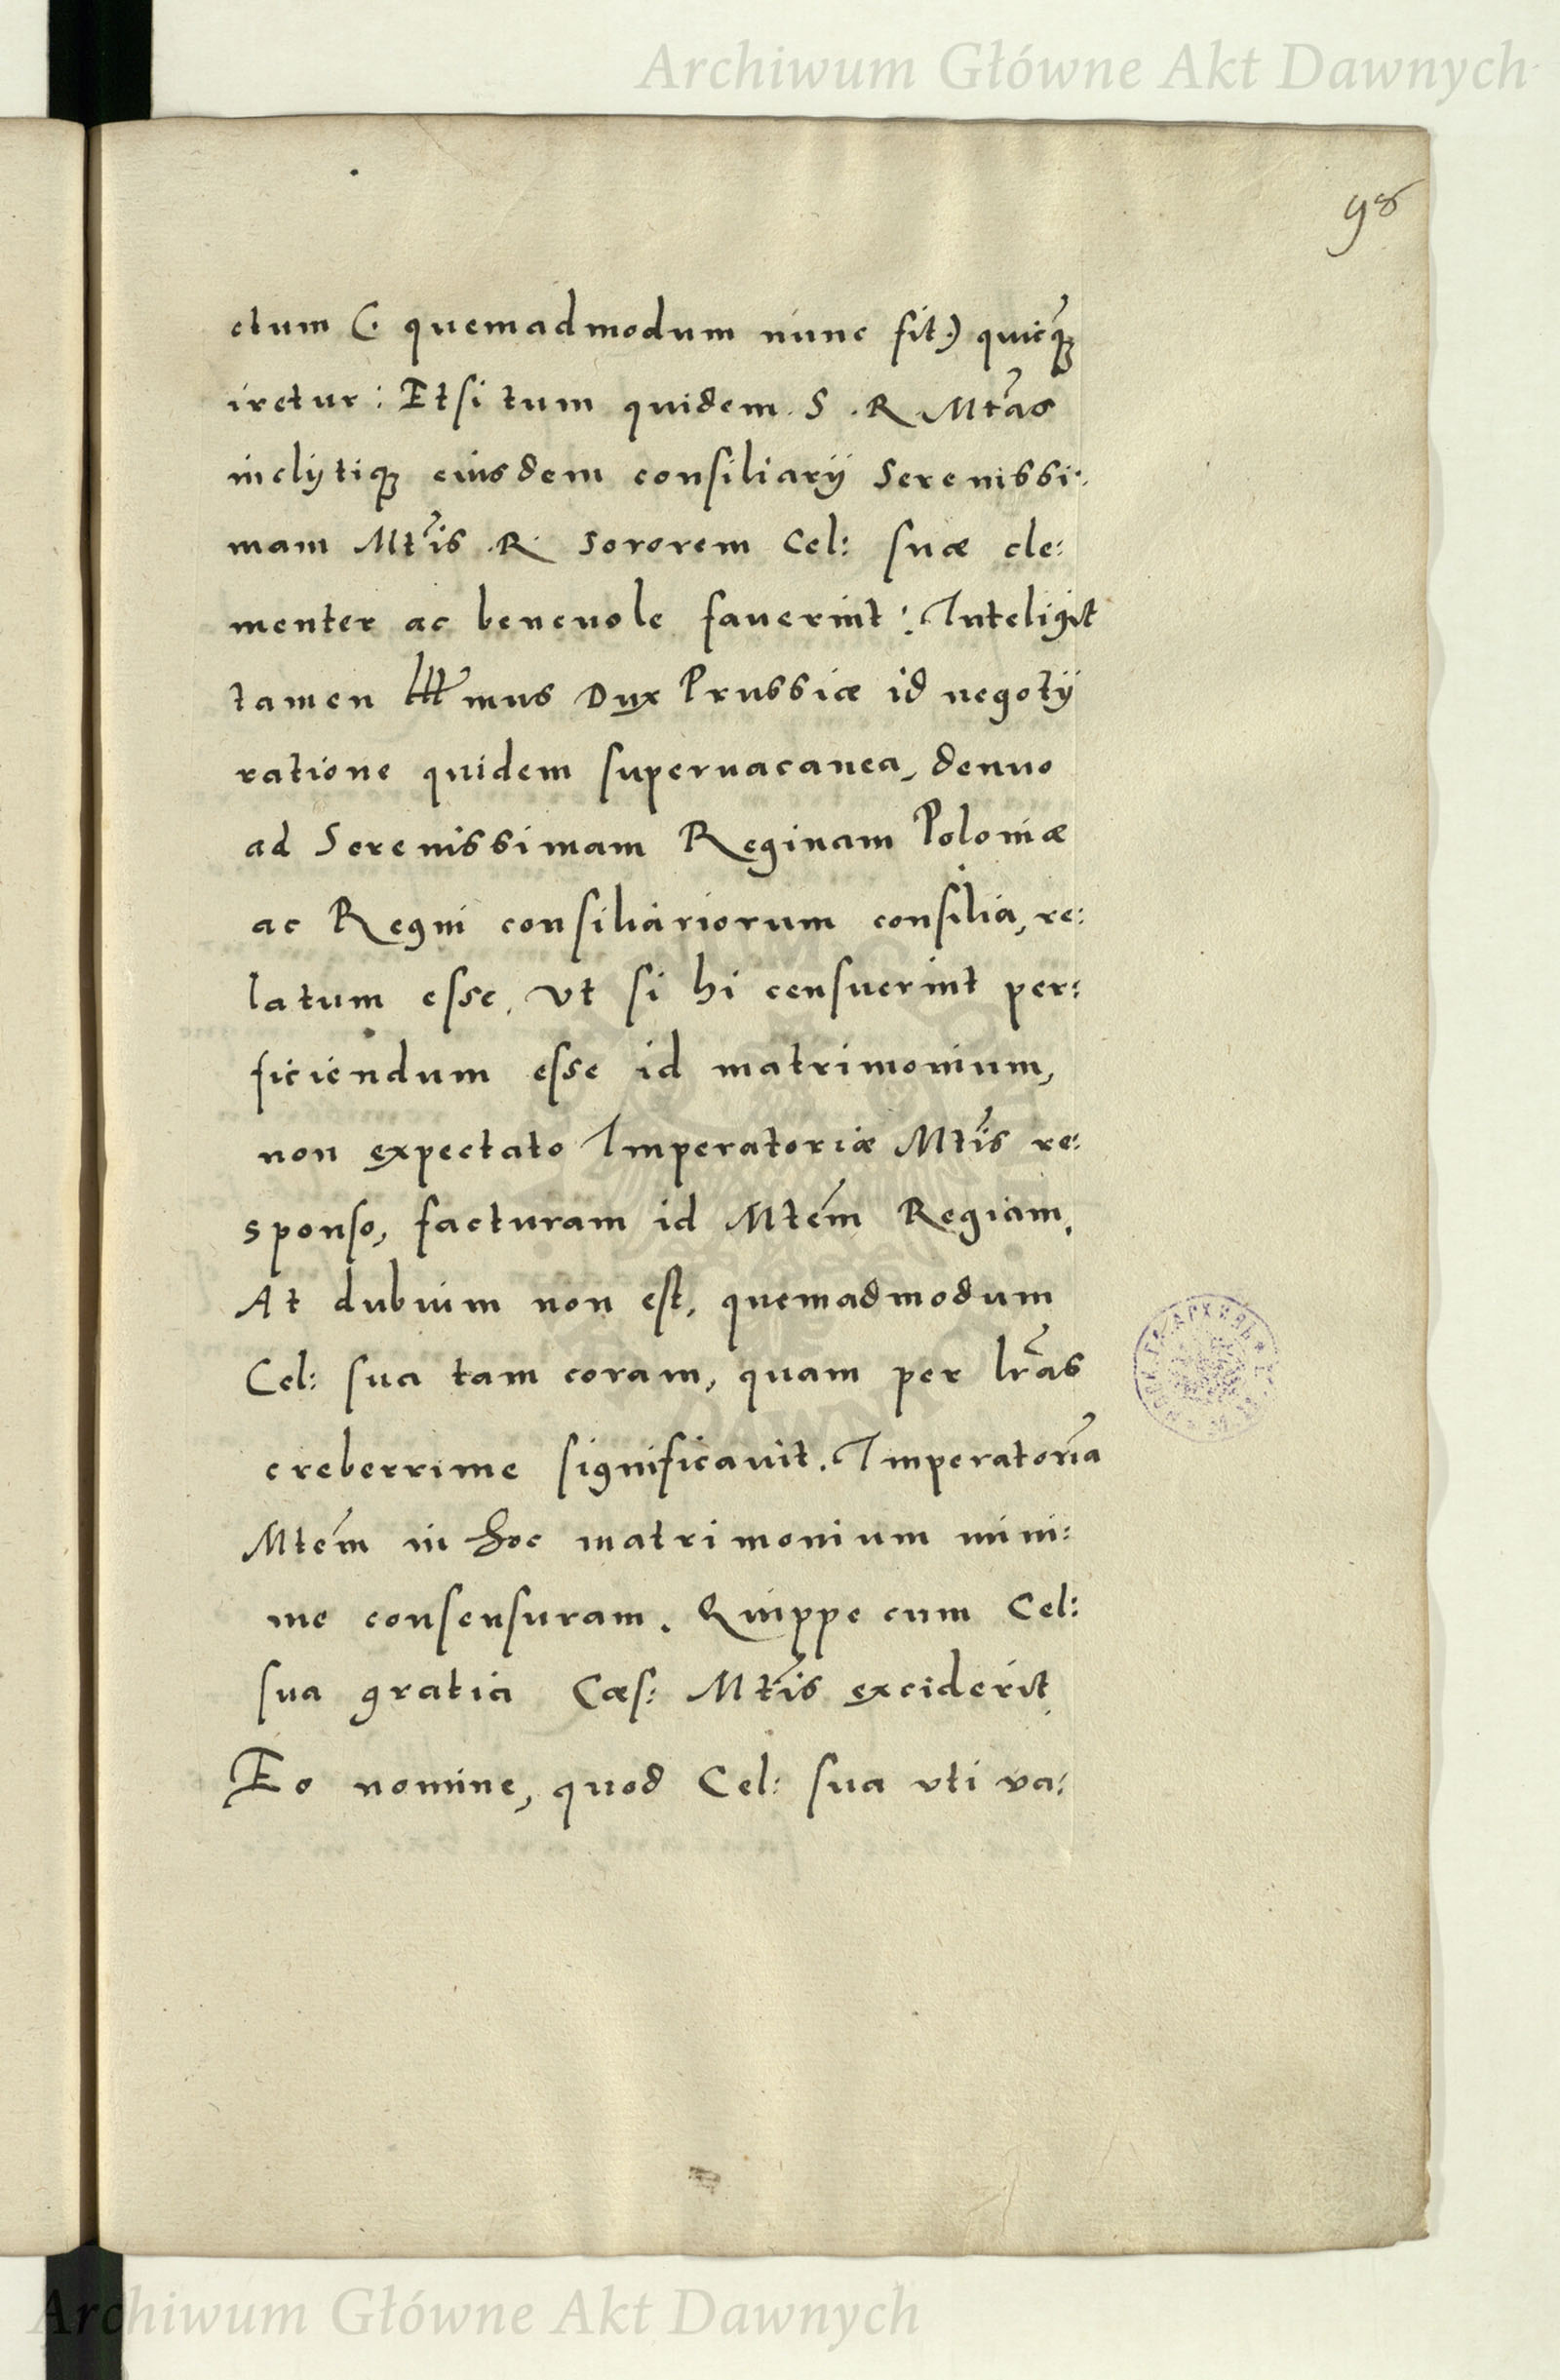 Archiwum Główne Akt Dawnych
98
ctum (. quemadmodum nunc sit.) quicq̃ꝫ
iretur: Etsi tum quidem. S. R. Mtãs
inclytiqꝫ eiusdem consiliarij Serenissi:
mam Mtĩs .R. sororem Cel: suæ cle:
menter ac beneuole fauerint: Inteligit
tamen Illr̃mus Dux Prussiæ id negotij
ratione quidem superuacanea, denuo
ad Serenissimam Reginam Poloniæ
ac Regni consiliariorum consilia, re:
latum esse, vt si hi censuerint per:
ficiendum esse id matrimonium,
non expectato Imperatoriæ Mtĩs re:
sponso, facturam id Mtẽm Regiam.
At dubium non est, quemadmodum
Cel: sua tam coram, quam per lr̃as
creberrime significauit. Imperatoriã
Mtẽm in hoc matrimonium mini:
me consensuram. Quippe cum Cel:
sua gratia Cæs: Mtĩs exciderit
Eo nomine, quod Cel: sua vti va:
Archiwum Główne Akt Dawnych